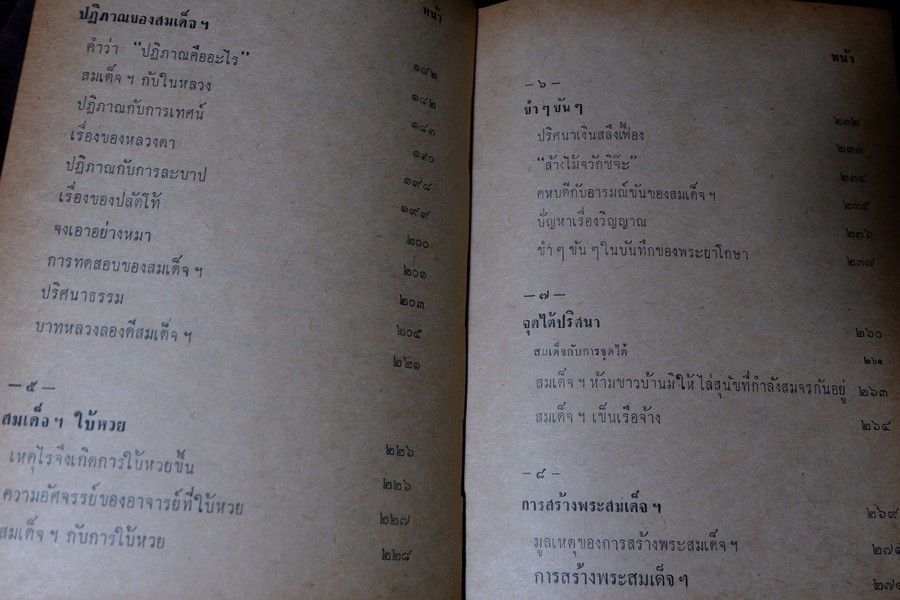 พน้า
ปฏิภาณของสมเด็จ ฯ
คำว่า “ปฏิภาณคืออะไร” ๑๘๒
สมเด็จ ฯ กับในหลวง ๑๘๒
ปฏิภาณกับการเทศน์ ๑๘๑
เรื่องของหลวงตา ๑๙๐
ปฏิภาณกับการละบาป ๑๙๘
เรื่องของปลัดโห้ ๑๙๙
จงเอาอย่างหมา ๒๐๐
การทดสอบของสมเด็จ ฯ ๒๐๑
ปริศนาธรรม ๒๐๓
บาทหลวงลองดีสมเด็จ ฯ ๒๐๕
๒๒๑
— ๕ —
สมเด็จ ฯ ใบ้หวย ๒๒๖
เหตุไรจึงเกิดการใบ้หวยขึ้น ๒๒๖
ความอัศจรรย์ของอาจารย์ที่ใบ้หวย ๒๒๗
สมเด็จ ฯ กับการใบ้หวย ๒๒๘
พน้า
— ๖ —
ขำ ๆ ขัน ๆ ๒๓๒
ปริศนาเงินสลึงเฟื้อง ๒๓๓
“ล้างไม้จวักชิจ๊ะ” ๒๓๔
คหบดีกับอารมณ์ขันของสมเด็จ ฯ ๒๓๕
ปัญหาเรื่องวิญญาณ ๒๓๖
ขำ ๆ ขัน ๆ ในบันทึกของพระยาโกษา ๒๓๗
— ๗ —
จุดไต้ปริศนา ๒๖๐
สมเด็จกับการจุดไต้ ๒๖๑
สมเด็จ ฯ ห้ามชาวบ้านมิให้ไล่สุนัขที่กำลังสมจรกันอยู่ ๒๖๓
สมเด็จ ฯ เข็นเรือจ้าง ๒๖๔
— ๘ —
การสร้างพระสมเด็จ ฯ ๒๖๙
มูลเหตุของการสร้างพระสมเด็จ ฯ
การสร้างพระสมเด็จ ๆ